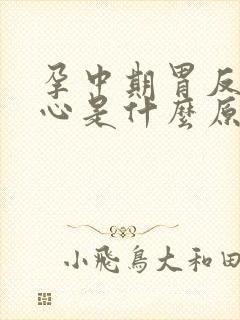 孕中期胃反
心是什麼原
小飛鳥大和田